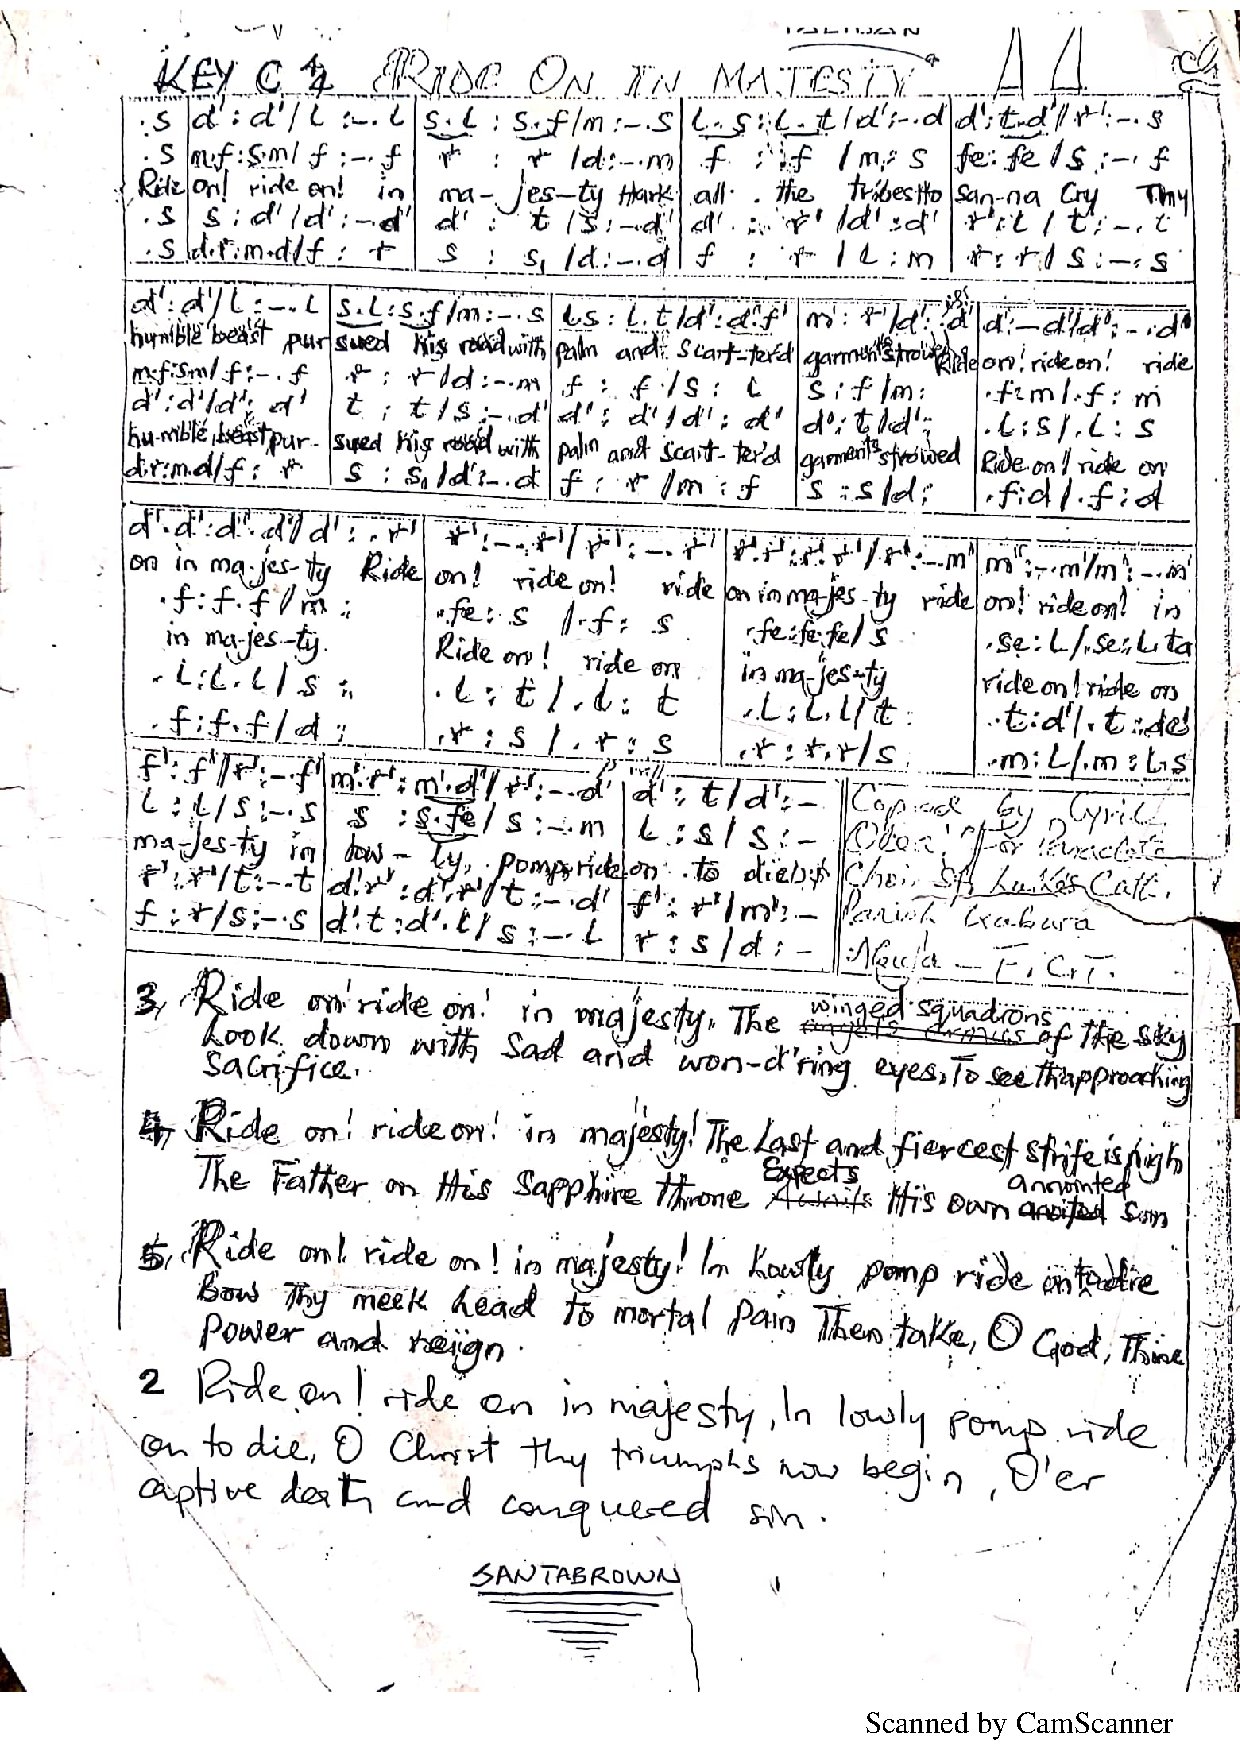 KEY C 4/4 RIDE ON IN MAJESTY
.s | d' : d' / l :-. l | s.l : s.f / m :-. s | l.s : l.t / d' :-. d | d' : t.d' / r' :-. s
.s | m.f : s.m / f :-. f | r : r / d :-. m | f : f / m : s | fe : fe / s :-. f
Ride on! ride on! in ma-jes-ty Hark all the tribes Ho san-na Cry Thy
.s | s : d' / d' :-. d' | d' : t / s :-. d' | d' : r' / d' : d' | r' : l / t :-. t
.s | d.r : m.d / f : r | s : s, / d :-. d | f : r / l : m | r : r / s :-. s
d' : d' / l :-. l | s.l : s.f / m :-. s | l.s : l.t / d' : d'.f' | m' : r' / d' : d' | d' :- d' / d' :-. d'
humble beast pur sued his road with palm and scatt-ter'd garments strowed Ride on! ride on! ride
m.f : s.m / f :-. f | r : r / d :-. m | f : f / s : l | s : f / m : | .f : m / .f : m
d' : d' / d' : d' | t : t / s :-. d' | d' : d' / d' : d' | d' : t / d' : | .l : s / .l : s
hu-mble beast pur- sued his road with palm and scatt-ter'd garments strowed Ride on! ride on
d.r : m.d / f : r | s : s, / d :-. d | f : r / m : f | s : s / d : | .f : d / .f : d
d'.d' : d'.d' / d' :. r' | r' :-. r' / r' :-. r' | r'.r' : r'.r' / r' :-. m' | m' :-. m' / m' :-. m'
on in ma-jes-ty Ride on! ride on! ride on in ma-jes-ty ride on! ride on! in
.f : f.f / m : | .fe : s / .f : s | .fe : fe.fe / s | .se : l / .se : l.ta
in ma-jes-ty. Ride on! ride on in ma-jes-ty ride on! ride on
.l : l.l / s : | .l : t / .l : t | .l : l.l / t : | .t : d' / .t : de'
.f : f.f / d : | .r : s / .r : s | .r : r.r / s | .m : l / .m : l.s
f' : f' / r' :-. f' | m'.r' : m'.d' / r' :-. d' | d' : t / d' :-
l : l / s :-. s | s : s.fe / s :-. m | l : s / s :-
ma-jes-ty in low-ly, pomp, ride on to die
r' : r' / t :-. t | d'.r' : d'.r' / t :-. d' | f' : r' / m' :-
f : r / s :-. s | d'.t : d'.l / s :-. l | r : s / d :-
Copied by Cyril
for Paraclete
Choir St. Luke's Cath.
Parish Kubwa
Abuja - F.C.T.
3, Ride on! ride on! in majesty. The winged squadrons of the sky
Look down with sad and won-d'ring eyes, To see th'approaching
Sacrifice.
4, Ride on! ride on! in majesty! The Last and fiercest strife is nigh
The Father on His Sapphire throne Expects His own annointed son
5, Ride on! ride on! in majesty! In Lowly pomp ride on to die
Bow Thy meek head to mortal Pain Then take, O God, Thine
Power and reign.
2 Ride on! ride on in majesty, In lowly pomp ride
on to die, O Christ Thy triumphs now begin, O'er
captive death and conquered sin.
SANTABROWN
Scanned by CamScanner